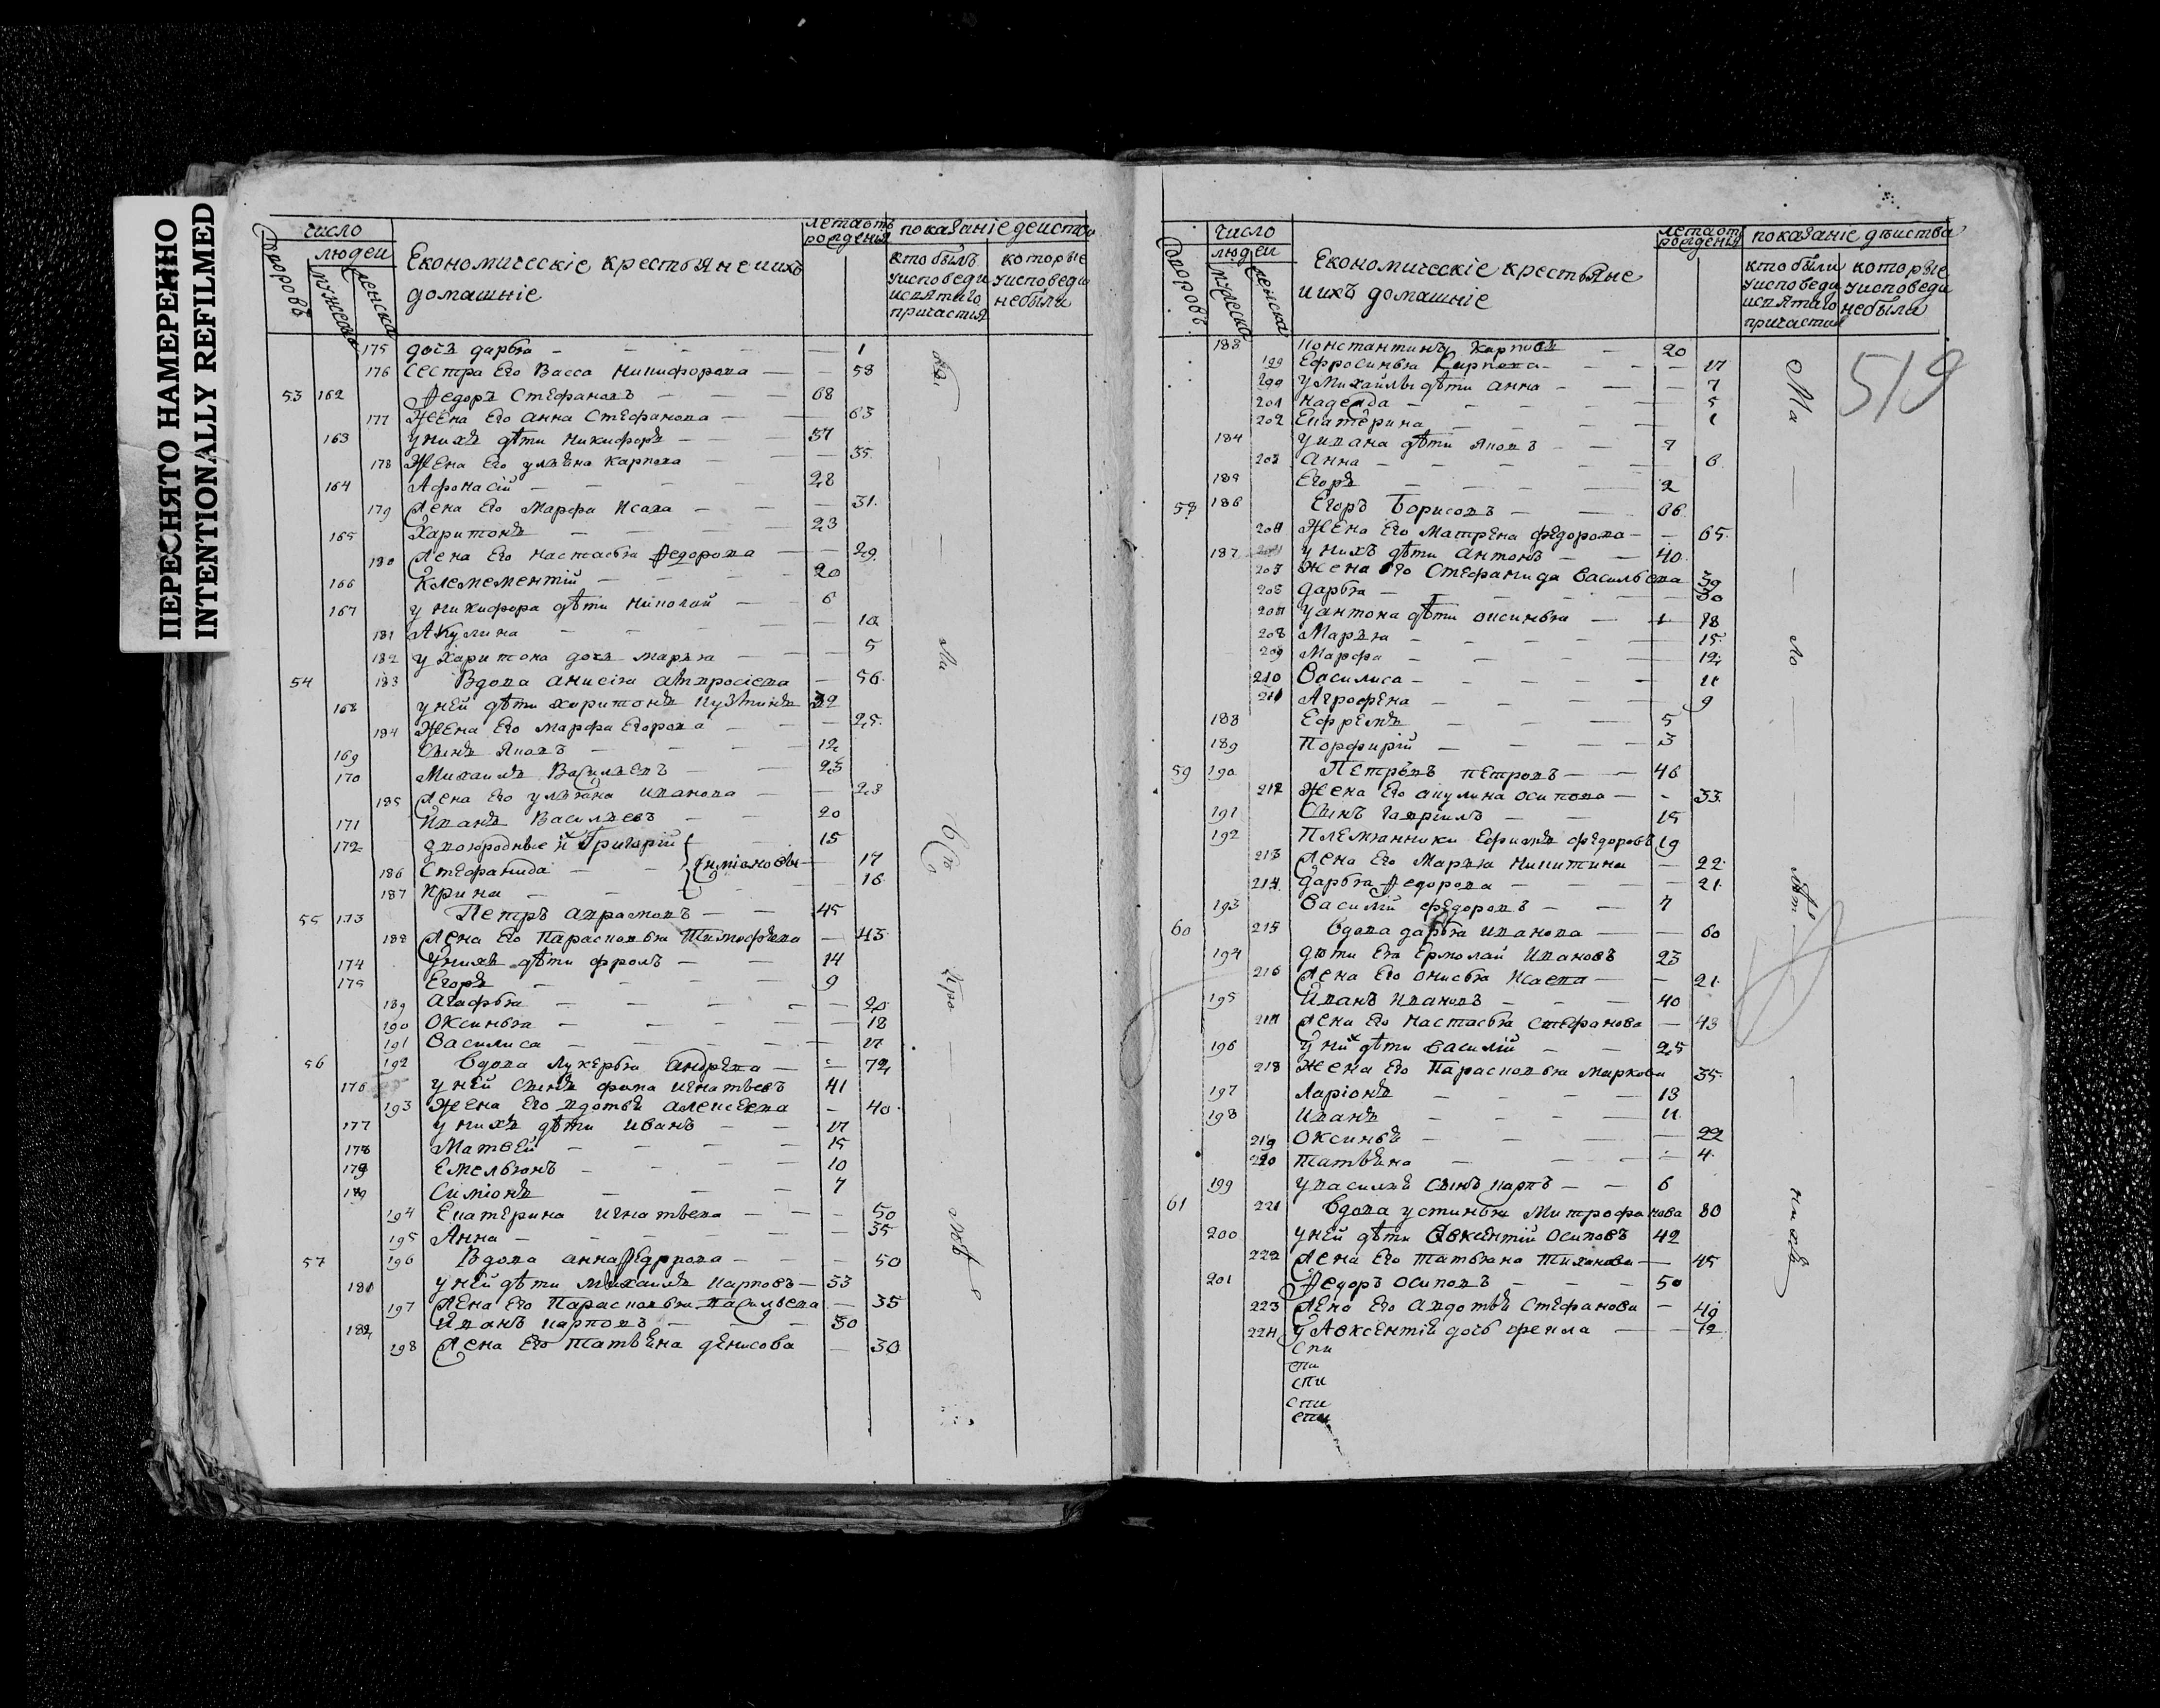 ПЕРЕСНЯТО НАМЕРЕННО
INTENTIONALLY REFILMED
число
людеи
дворовъ
мужеска
женска
Економическiе крестьяне иихъ
домашнiе
лета отъ
рождения
показанiе деиства
кто былъ
уисповеди
исвятаго
причастия
которые
уисповеди
небыли
175 дочь дарья 1
176 сестра Его Васса никифорова 58
53 162 Федоръ Стефановъ 68
177 Жена Его анна Стефанова 63
163 унихъ дѣти никифоръ 37
178 Жена Его ульяна карпова 35
164 Афонасiй 28
179 жена Его Марфа Исаева 31
165 Харитонъ 23
180 жена Его настасья Федорова 29
166 Клемементiй 20
167 у никифора дѣти николай 6
181 Акулина 10
182 у Харитона дочь марья 5
54 183 Вдова анисiя амвросiева 56
168 уней дѣти харитонъ кузминъ 32
184 Жена Его марфа Егорова 25
169 Сынъ яковъ 12
170 Михаилъ Васильевъ 25
185 жена Его ульяна иванова 23
171 Иванъ Васильевъ 20
172 двоюродные Григорiй 15
186 Стефанида симiоновы 17
187 Ирина 16
55 173 Петръ аврамовъ 45
188 жена Его Парасковья Тимофѣева 43
174 Унихъ дѣти фролъ 14
175 Егоръ 9
189 агафья 20
190 Оксинья 18
191 Василиса 17
56 192 Вдова лукерья андрѣева 72
176 у ней сынъ фома игнатьевъ 41
193 Жена Его авдотья алексеева 40
177 у нихъ дѣти иванъ 17
178 Матвей 15
179 Емельянъ 10
180 Симiонъ 7
194 Екатерина игнатьева 50
195 Анна 35
57 196 Вдова анна Федорова 50
181 уней дѣти михаилъ карповъ 53
197 жена Его Парасковья васильева 35
182 Иванъ карповъ 30
198 жена Его татьяна денисова 30
число
людеи
дворовъ
мужеска
женска
Економическiе крестьяне
иихъ домашнiе
лета отъ
рождения
показанiе дѣиства
кто были
уисповеди
исвятаго
причастия
которые
уисповеди
небыли
519
183 константинъ карповъ 20
199 Ефросинья карпова 17
200 у Михайлы дѣти анна 7
201 надежда 5
202 Екатерина 1
184 уивана дѣти яковъ 7
203 анна 6
185 Егоръ 2
58 186 Егоръ Борисовъ 66
204 Жена Его матрена федорова 65
187 у нихъ дѣти антонъ 40
205 жена Его Стефанида васильева 39
206 дарья 30
207 у антона дѣти оксинья 18
208 марья 15
209 марфа 12
210 Василиса 11
211 Агрофена 9
188 Ефремъ 5
189 Порфирiй 3
59 190 Петръ петровъ 46
212 Жена Его акулина осипова 33
191 Сынъ гаврилъ 15
192 Племянники Ефимъ федоровъ 19
213 жена Его Марья никитина 22
214 дарья Федорова 21
193 Василiй федоровъ 7
60 215 Вдова дарья иванова 60
194 дѣти Ея Ермолай ивановъ 23
216 жена Его онисья исаева 21
195 Иванъ ивановъ 40
217 жена Его настасья стефанова 43
196 у них дѣти василiй 25
218 Жена Его Парасковья маркова 35
197 Ларiонъ 13
198 Иванъ 11
219 Оксинья 22
220 татьяна 4
199 увасилья сынъ карпъ 6
61 221 Вдова устинья митрофанова 80
200 уней дѣти Авксентiй осиповъ 42
222 жена Его татьяна тиханова 45
201 Федоръ осиповъ 50
223 жена Его авдотья Стефанова 49
224 у Авксентiя дочь фекла 12
спи
спи
спи
спи
спи